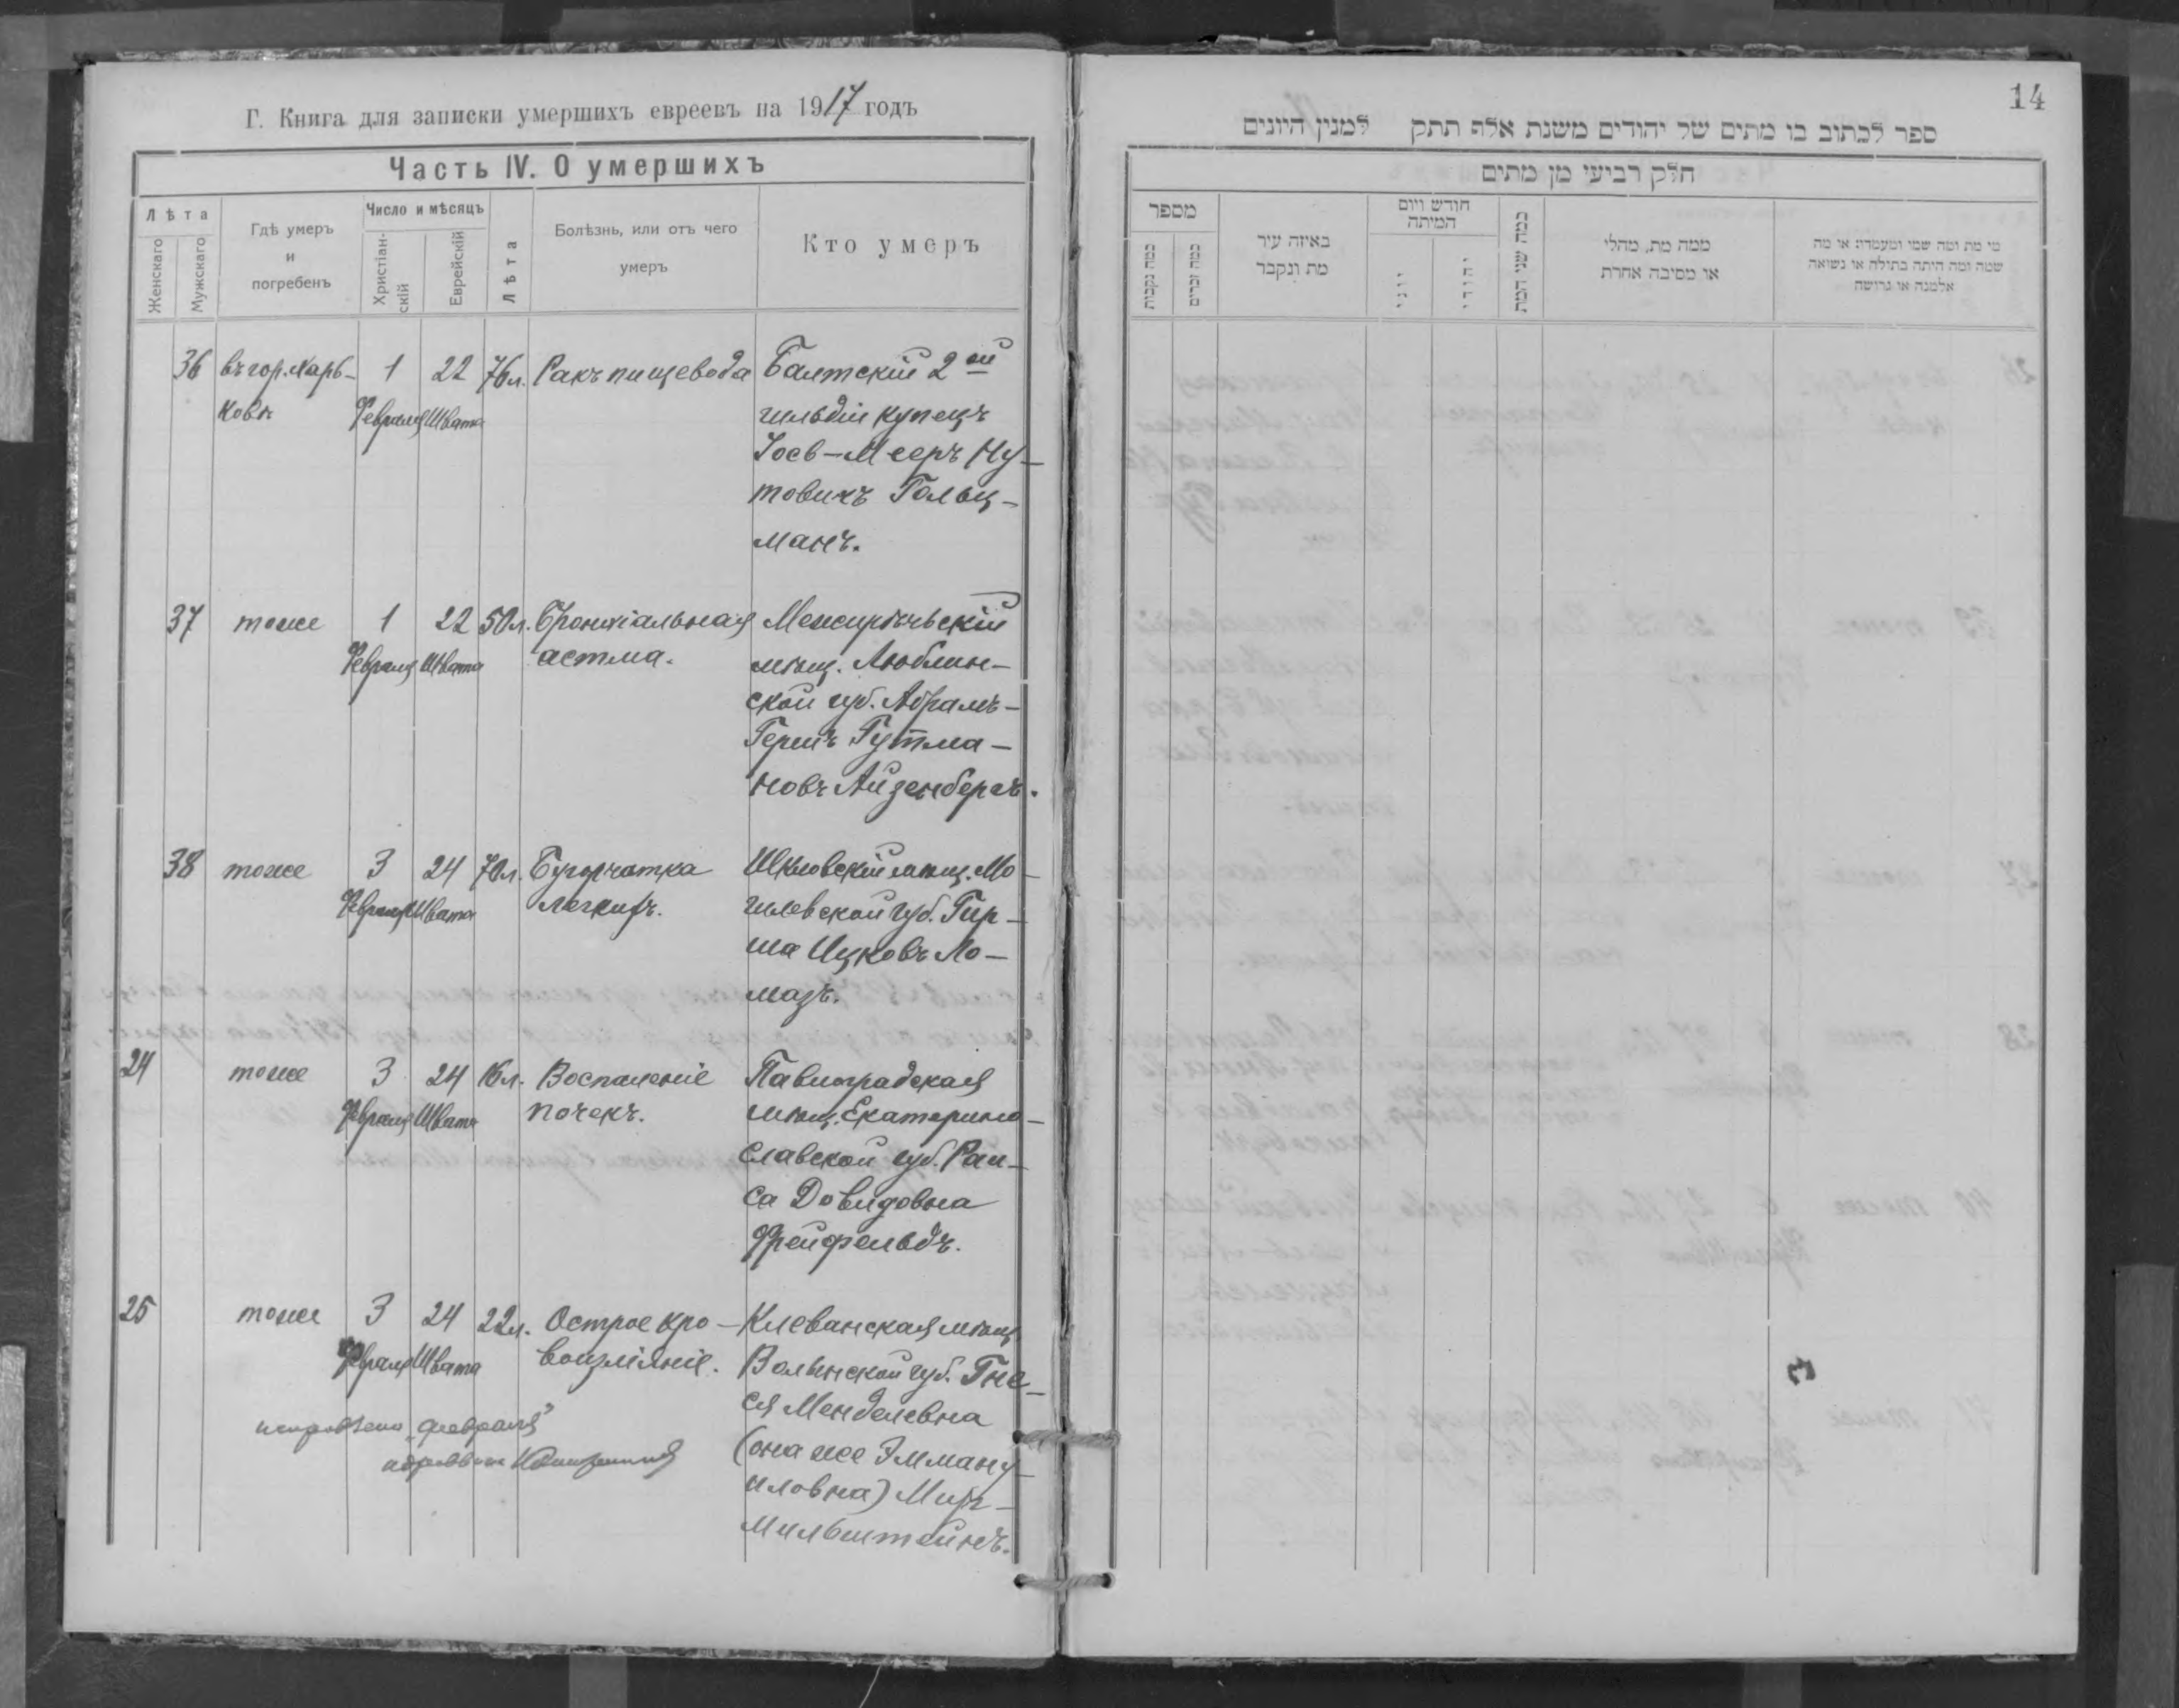 Г. Книга для записки умершихъ евреевъ на 1917 годъ
Часть IV. О умершихъ
Лѣта
Женскаго
Мужскаго
Гдѣ умеръ
и
погребенъ
Число и мѣсяцъ
Христіан-
скій
Еврейскій
Лѣта
Болѣзнь, или отъ чего
умеръ
Кто умеръ
36 въ гор. Харь- 1 22 76 л. Ракъ пищевода Балтскій 2ой
ковѣ Февраля Швата гильдіи купецъ
Іосв-Мееръ Ну-
товичъ Гольц-
манъ.
37 тоже 1 22 50 л. Бронхіальная Межирѣчьскій
Февраля Швата астма. мѣщ. Люблин-
ской губ. Абрамъ-
Гершъ Гутма-
новъ Айзенбергъ.
38 тоже 3 24 70 л. Бугорчатка Шкловскій мѣщ. Мо-
Февраля Швата легкихъ. гилевской губ. Гир-
ша Ицковъ Ло-
мазъ.
24 тоже 3 24 16 л. Воспаленіе Павлоградская
Февраля Швата почекъ. мѣщ. Екатерино-
славской губ. Раи-
са Довидовна
Фрейфельдъ.
25 тоже 3 24 22 л. Острое кро- Клеванская мѣщ.
Февраля Швата воизліяніе. Волынской губ. Гне-
ся Менделевна
(она же Эмману-
иловна) Мир-
мильштейнъ.
"февраля"
14
ספר לכתוב בו מתים של יהודים משנת אלף תתק למנין היונים
חלק רביעי מן מתים
מספר
כמה נקבות
כמה זכרים
באיזה עיר
מת ונקבר
חודש ויום
המיתה
יוני
יהודי
כמה שני המת
ממה מת, מחלי
או מסיבה אחרת
מי מת ומה שמו ומעמדו או מה
שמה ומה היתה בתולה או נשואה
אלמנה או גרושה